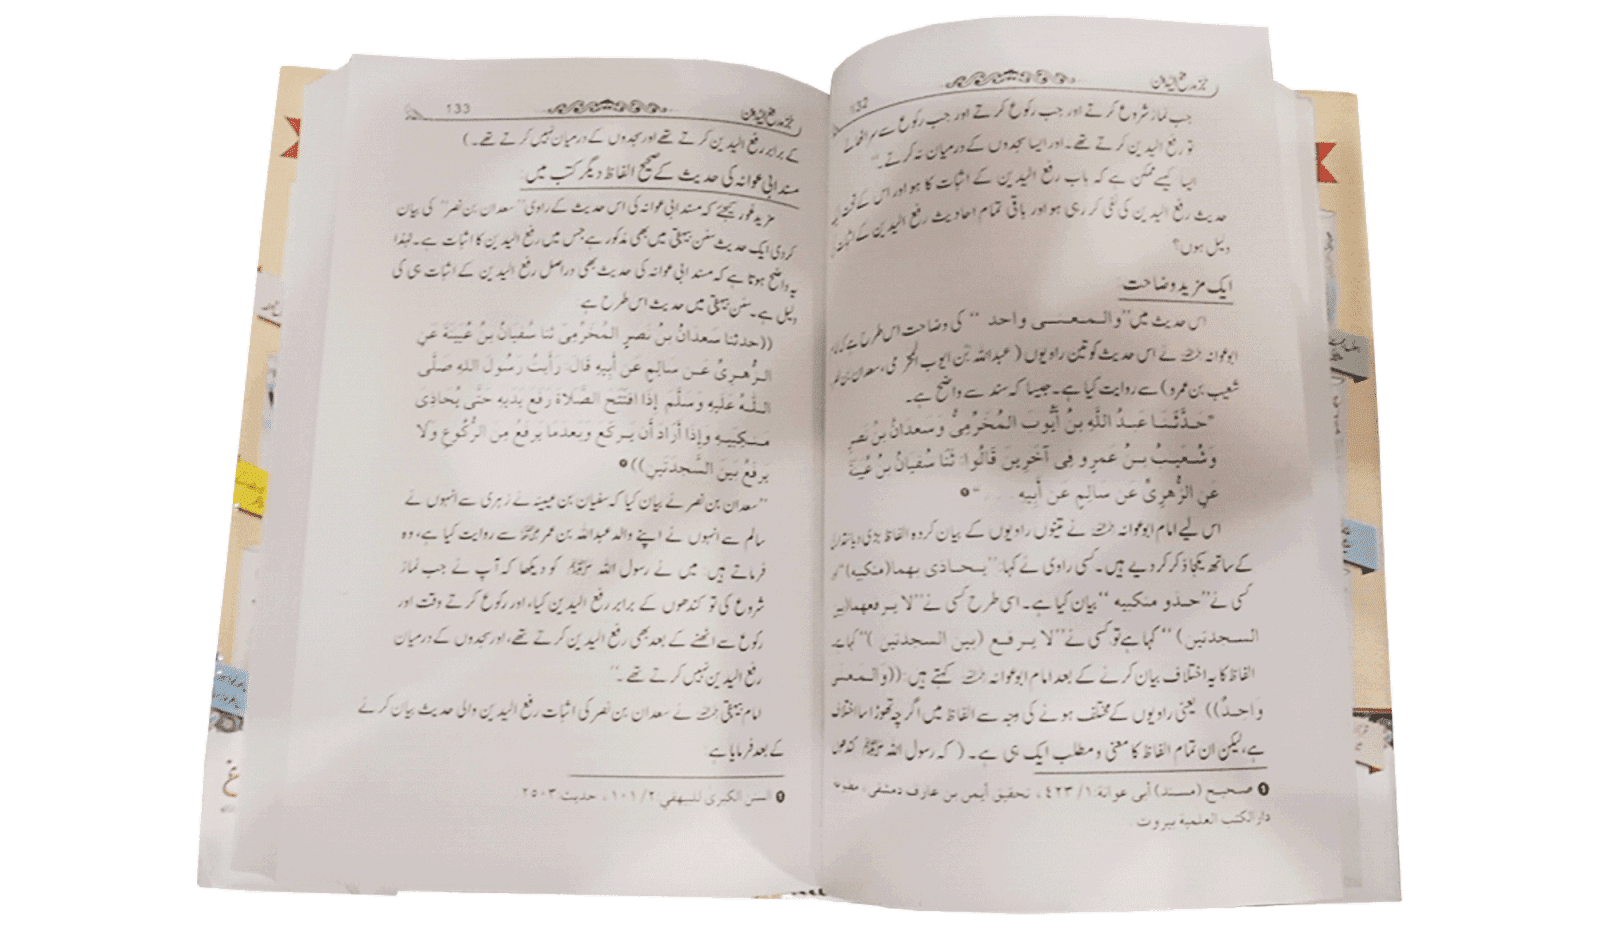 جزء رفع الیدین
132
جب نماز شروع کرتے اور جب رکوع کرتے اور جب رکوع سے سر اٹھاتے
تو رفع الیدین کرتے تھے۔ اور ایسا سجدوں کے درمیان نہ کرتے۔“
ایسا کیسے ممکن ہے کہ باب رفع الیدین کے اثبات کا ہو اور اس کے تحت
حدیث رفع الیدین کی نفی کر رہی ہو اور باقی تمام احادیث رفع الیدین کے اثبات
دلیل ہوں؟
ایک مزید وضاحت
اس حدیث میں ”والـمـعـنـى واحد“ کی وضاحت اس طرح ہے کہ
ابوعوانہ رحمہ اللہ نے اس حدیث کو تین راویوں (عبداللہ بن ایوب المخرمی، سعدان بن
شعیب بن عمرو) سے روایت کیا ہے۔ جیسا کہ سند سے واضح ہے۔
”حَدَّثَـنَـا عَبـدُ اللَّهِ بـنُ أَيُّوبَ المُخَرِمِىُّ وَسَعدَانُ بنُ نَصرٍ
وَشُـعَيبُ بـنُ عَمرٍو فِى آخَرِينَ قَالُوا: ثَنَا سُفيَانُ بنُ عُيَينَةَ
عَنِ الزُّهرِىِّ عَن سَالِمٍ عَن أَبِيهِ ....“ ❶
اس لیے امام ابوعوانہ رحمہ اللہ نے تینوں راویوں کے بیان کردہ الفاظ بڑی دیانتداری
کے ساتھ یکجا ذکر کر دیے ہیں۔ کسی راوی نے کہا: ”یـحـاذی بهما (منکبیه)“
کسی نے ”حـذو منکبیه“ بیان کیا ہے۔ اسی طرح کسی نے ”لا یـرفعهما (بین
السجدتین)“ کہا ہے تو کسی نے ”لا یـرفـع (بین السجدتین)“ کہا ہے۔
الفاظ کا یہ اختلاف بیان کرنے کے بعد امام ابوعوانہ رحمہ اللہ کہتے ہیں: ((وَالـمَعنَى
وَاحِدٌ)) یعنی راویوں کے مختلف ہونے کی وجہ سے الفاظ میں اگرچہ تھوڑا سا اختلاف
ہے، لیکن ان تمام الفاظ کا معنی و مطلب ایک ہی ہے۔ (کہ رسول اللہ ﷺ کندھوں
❶ صحیح (مسند) أبی عوانة: ١/ ٤٢٣، تحقیق أیمن بن عارف دمشقی، مطبوعه
دارالکتب العلمیة بیروت۔
جزء رفع الیدین
133
کے برابر رفع الیدین کرتے تھے اور سجدوں کے درمیان نہیں کرتے تھے۔)
مسند ابی عوانہ کی حدیث کے صحیح الفاظ دیگر کتب میں:
مزید غور کیجئے کہ مسند ابی عوانہ کی اس حدیث کے راوی ”سعدان بن نصر“ کی بیان
کردہ ایک حدیث سنن بیہقی میں بھی مذکور ہے جس میں رفع الیدین کا اثبات ہے۔ لہٰذا
یہ واضح ہوتا ہے کہ مسند ابی عوانہ کی حدیث بھی دراصل رفع الیدین کے اثبات ہی کی
دلیل ہے۔ سنن بیہقی میں حدیث اس طرح ہے:
((حدثنا سَعدَانُ بنُ نَصرٍ المُخَرِّمِىّ ثنا سُفيَانُ بنُ عُيَينَةَ عَنِ
الـزُّهـرِىِّ عَـن سَالِمٍ عَن أَبِيهِ قَالَ: رَأَيتُ رَسُولَ اللهِ صَلَّى
اللّٰـهُ عَلَيهِ وَسَلَّمَ إِذَا افتَتَحَ الصَّلَاةَ رَفَعَ يَدَيهِ حَتَّى يُحَاذِىَ
مَـنـكِبَيـهِ وَإِذَا أَرَادَ أَن يَـركَعَ وَبَعدَمَا يَرفَعُ مِنَ الرُّكُوعِ وَلَا
يَرفَعُ بَينَ السَّجدَتَينِ)) ❶
”سعدان بن نصر نے بیان کیا کہ سفیان بن عیینہ نے زہری سے انہوں نے
سالم سے انہوں نے اپنے والد عبداللہ بن عمر رضی اللہ عنہما سے روایت کیا ہے، وہ
فرماتے ہیں: میں نے رسول اللہ ﷺ کو دیکھا کہ آپ نے جب نماز
شروع کی تو کندھوں کے برابر رفع الیدین کیا، اور رکوع کرتے وقت اور
رکوع سے اٹھنے کے بعد بھی رفع الیدین کرتے تھے، اور سجدوں کے درمیان
رفع الیدین نہیں کرتے تھے۔“
امام بیہقی رحمہ اللہ نے سعدان بن نصر کی اثبات رفع الیدین والی حدیث بیان کرنے
کے بعد فرمایا ہے:
❶ السنن الکبریٰ للبیهقي: ٢/ ١٠١، حدیث: ٢٥٠٣